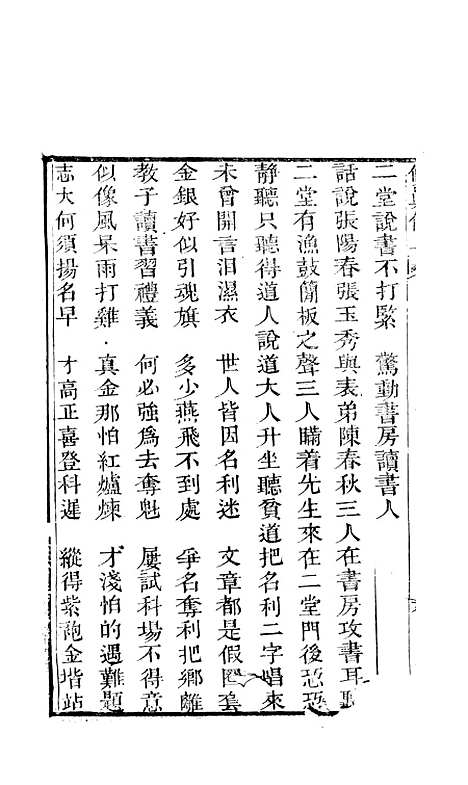 二堂說書不打緊　驚動書房讀書人
話說張陽春張玉秀與表弟陳春秋三人在書房攻書耳聽
二堂有漁鼓簡板之聲三人瞞着先生來在二堂門後恐恐
靜聽只聽得道人說道大人升坐聽貧道把名利二字唱來
未曾開言泪濕衣　世人皆因名利迷　文章都是假圈套
金銀好似引魂旗　多少燕飛不到處　爭名奪利把鄉離
教子讀書習禮義　何必強爲去奪魁　屢試科場不得意
似像風呆雨打雞　真金那怕紅爐煉　才淺怕的遇難題
志大何須揚名早　才高正喜登科遲　縱得紫袍金堦站